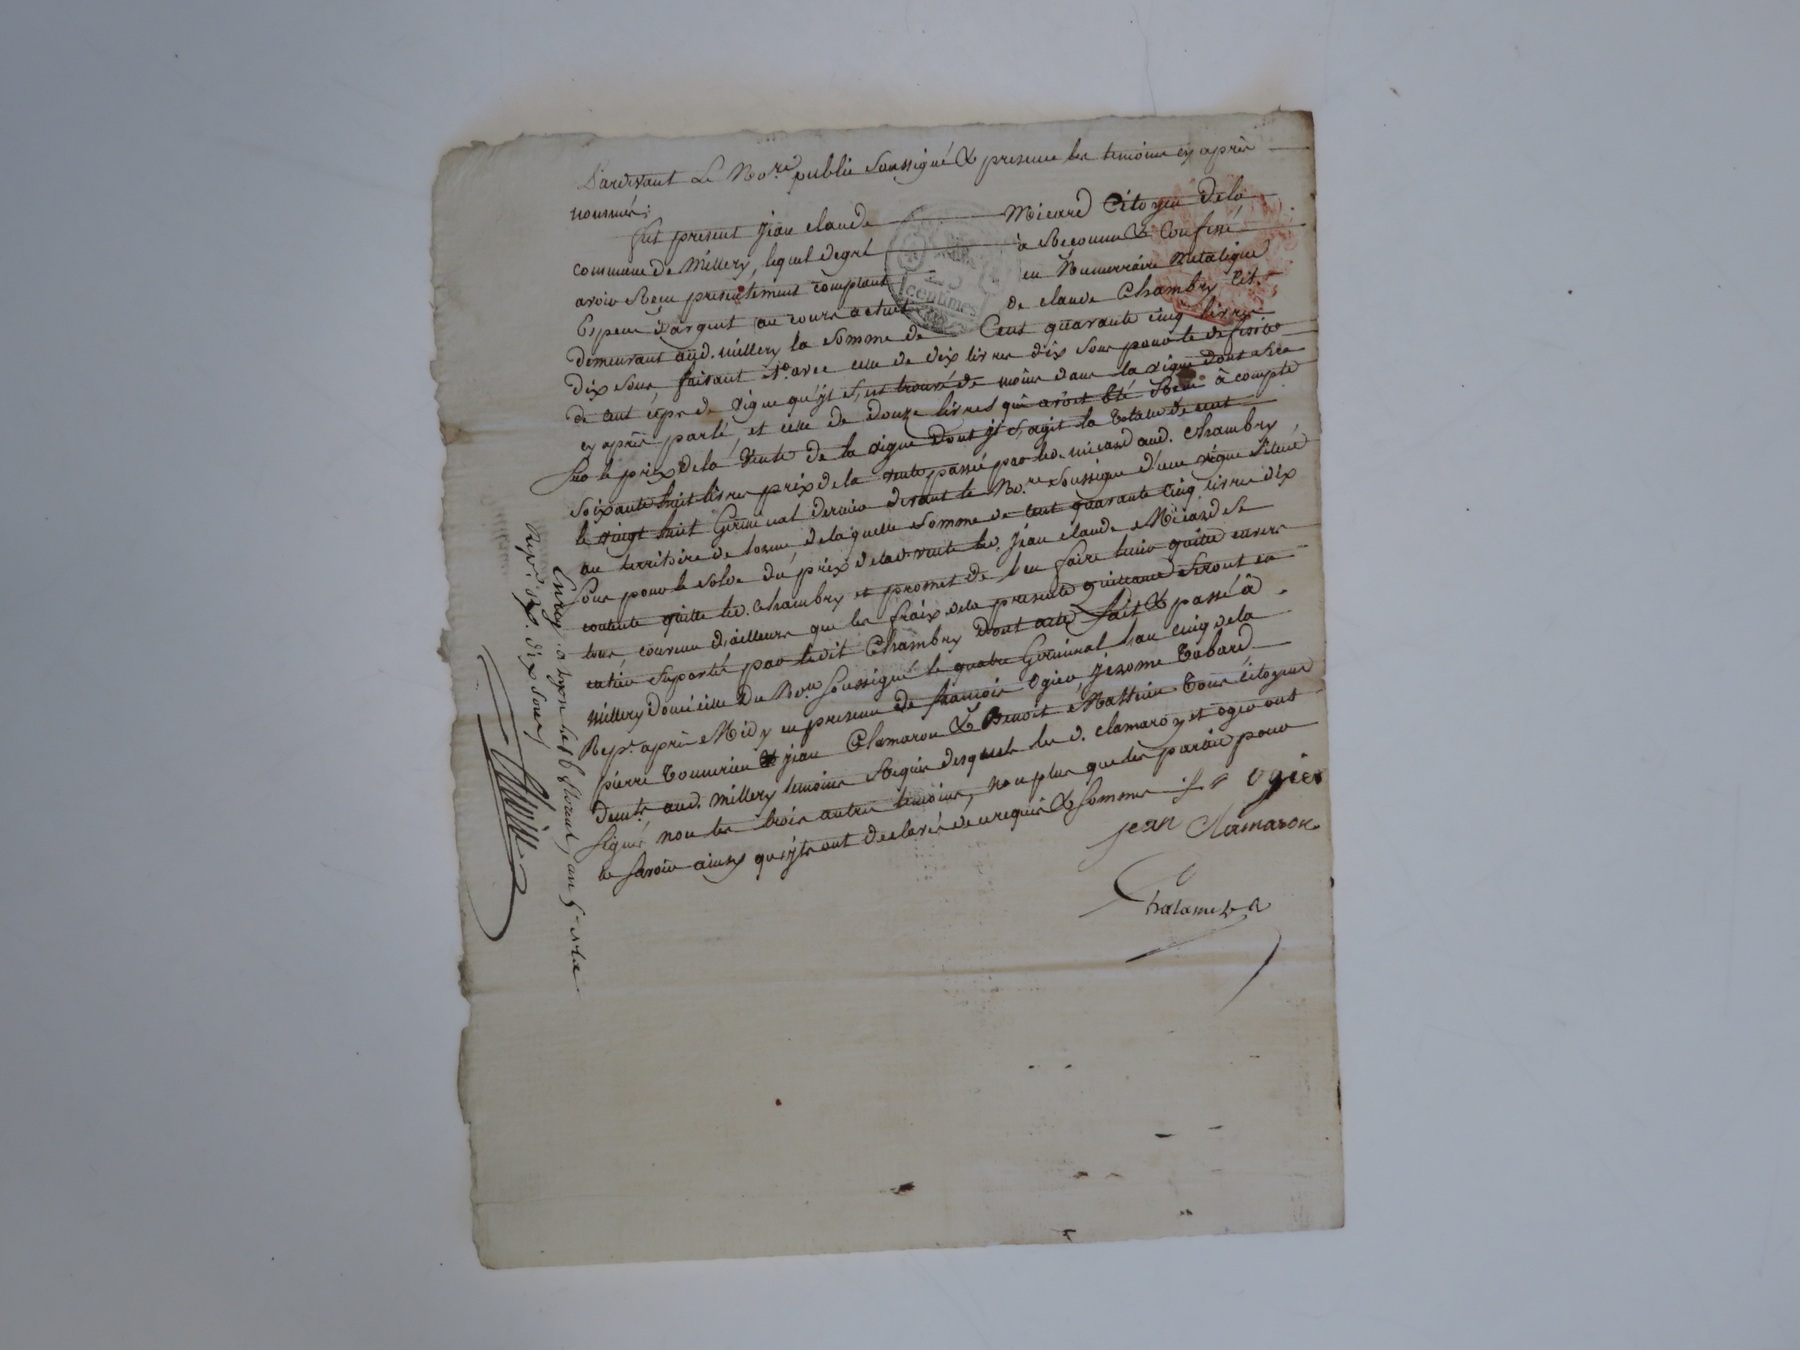 Pardevant Le No.re public soussigné & presence les temoins cy après
nommés;
fut present jean claude Micard Citoyen de la
commune de Millery, lequel degré à Reconnu & Confessé
avoir Reçu presentement comptant en Numerraire Metalique
Espece d'argent au cours actuel de claude Chambry Cit.
demeurant aud. millery la somme de Cent quarante cinq livres
dix sous, faisant avec celle de dix livres dix sous pour le deficite
de cent ceps de vigne qu'jl s'est trouvé de moins dans la vigne dont sera
cy après parlé, et celle de douze livres qui avoit été Reçu à compte
sur le prix de la vente de la vigne dont jl s'agit la totale de cent
soixante huit livres prix de la vente passé par led. micard aud. Chambry
le vingt huit Germinal dernier devant le No.re soussigné d'une vigne située
au territoire de de laquelle somme de cent quarante cinq livres dix
sous pour le solde du prix de lad. vente led. jean claude Micard se
contente quitte led. Chambry et promet de l'en faire tenir quitte envers
tous convenu d'ailleurs que les fraix de la presente quittance seront en
entier suportés par ledit Chambry dont acte fait & passé à
Millery domicille du No.re soussigné le quatre Germinal l'an cinq de la
Rep.e après Midy en presence de francois Ogier, jerome Tabard
pierre Tonnerieu & jean Clamaron & Benoit Mathieu Tous citoyens
demts. aud. millery temoins Requis desquels les d. clamaron et ogier ont
signé non les trois autres temoins, non plus que les parties pour
le savoir ainsy qu'jls ont declaré de ce requis & sommés Ogier
jean Clamaron
Chalamel
25
centimes
Enreg. a lyon le 16 floreal, an 5.
Reçu dix sous